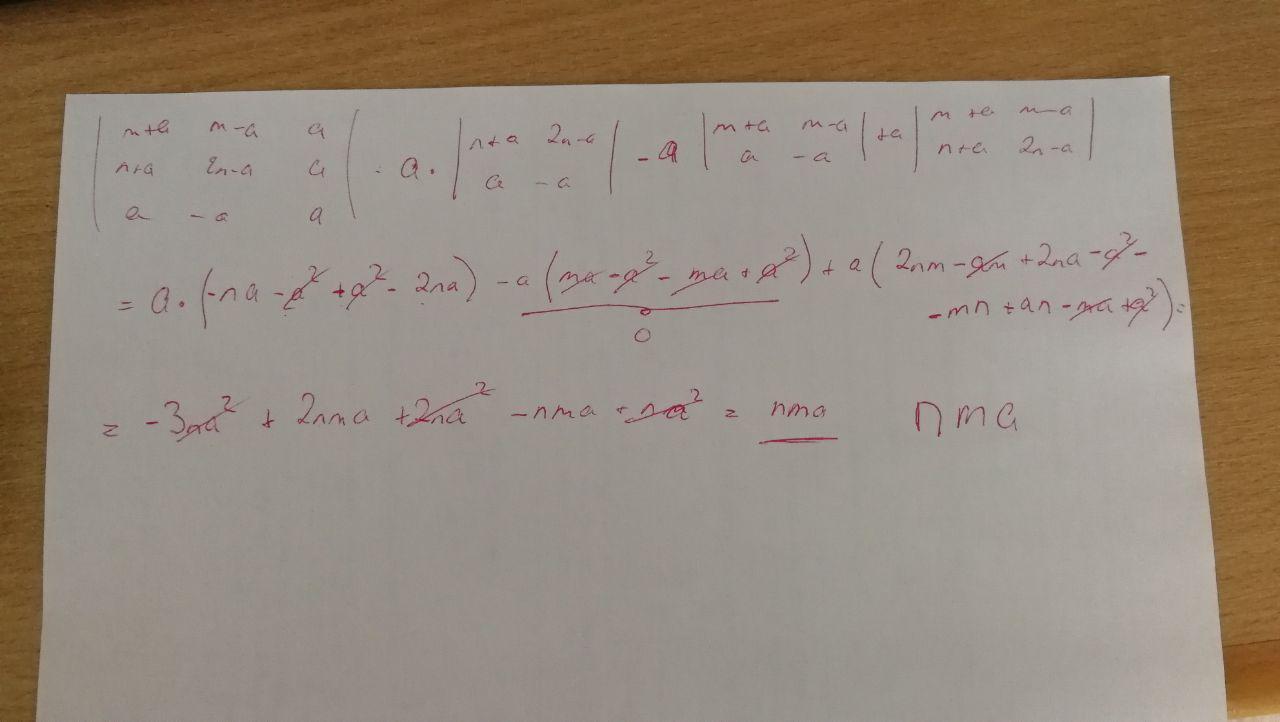 | m+a m-a a | = a · | n+a 2n-a | - a | m+a m-a | + a | m+a m-a |
| n+a 2n-a a | | a -a | | a -a | | n+a 2n-a |
| a -a a |
= a · (-na - a² + a² - 2na) - a (ma - a² - ma + a²) + a (2nm - am + 2na - a² -
0
- mn + an - ma + a²) =
= -3na² + 2nma + 2na² - nma + na² = nma nma